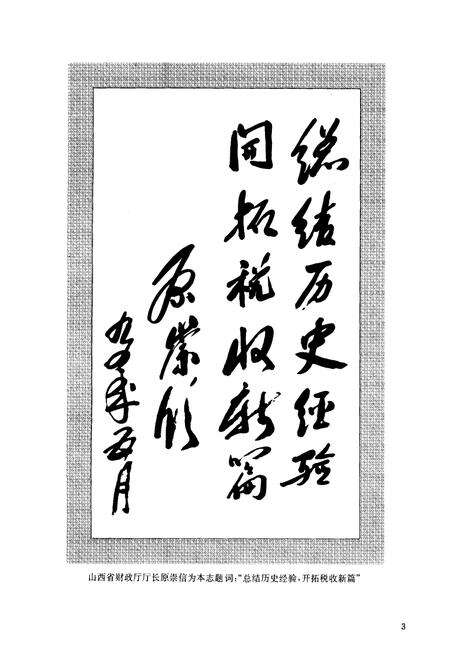 總结历史经验
開拓税收新篇
原崇信
九五年五月
山西省财政厅厅长原崇信为本志题词:“总结历史经验,开拓税收新篇”
3